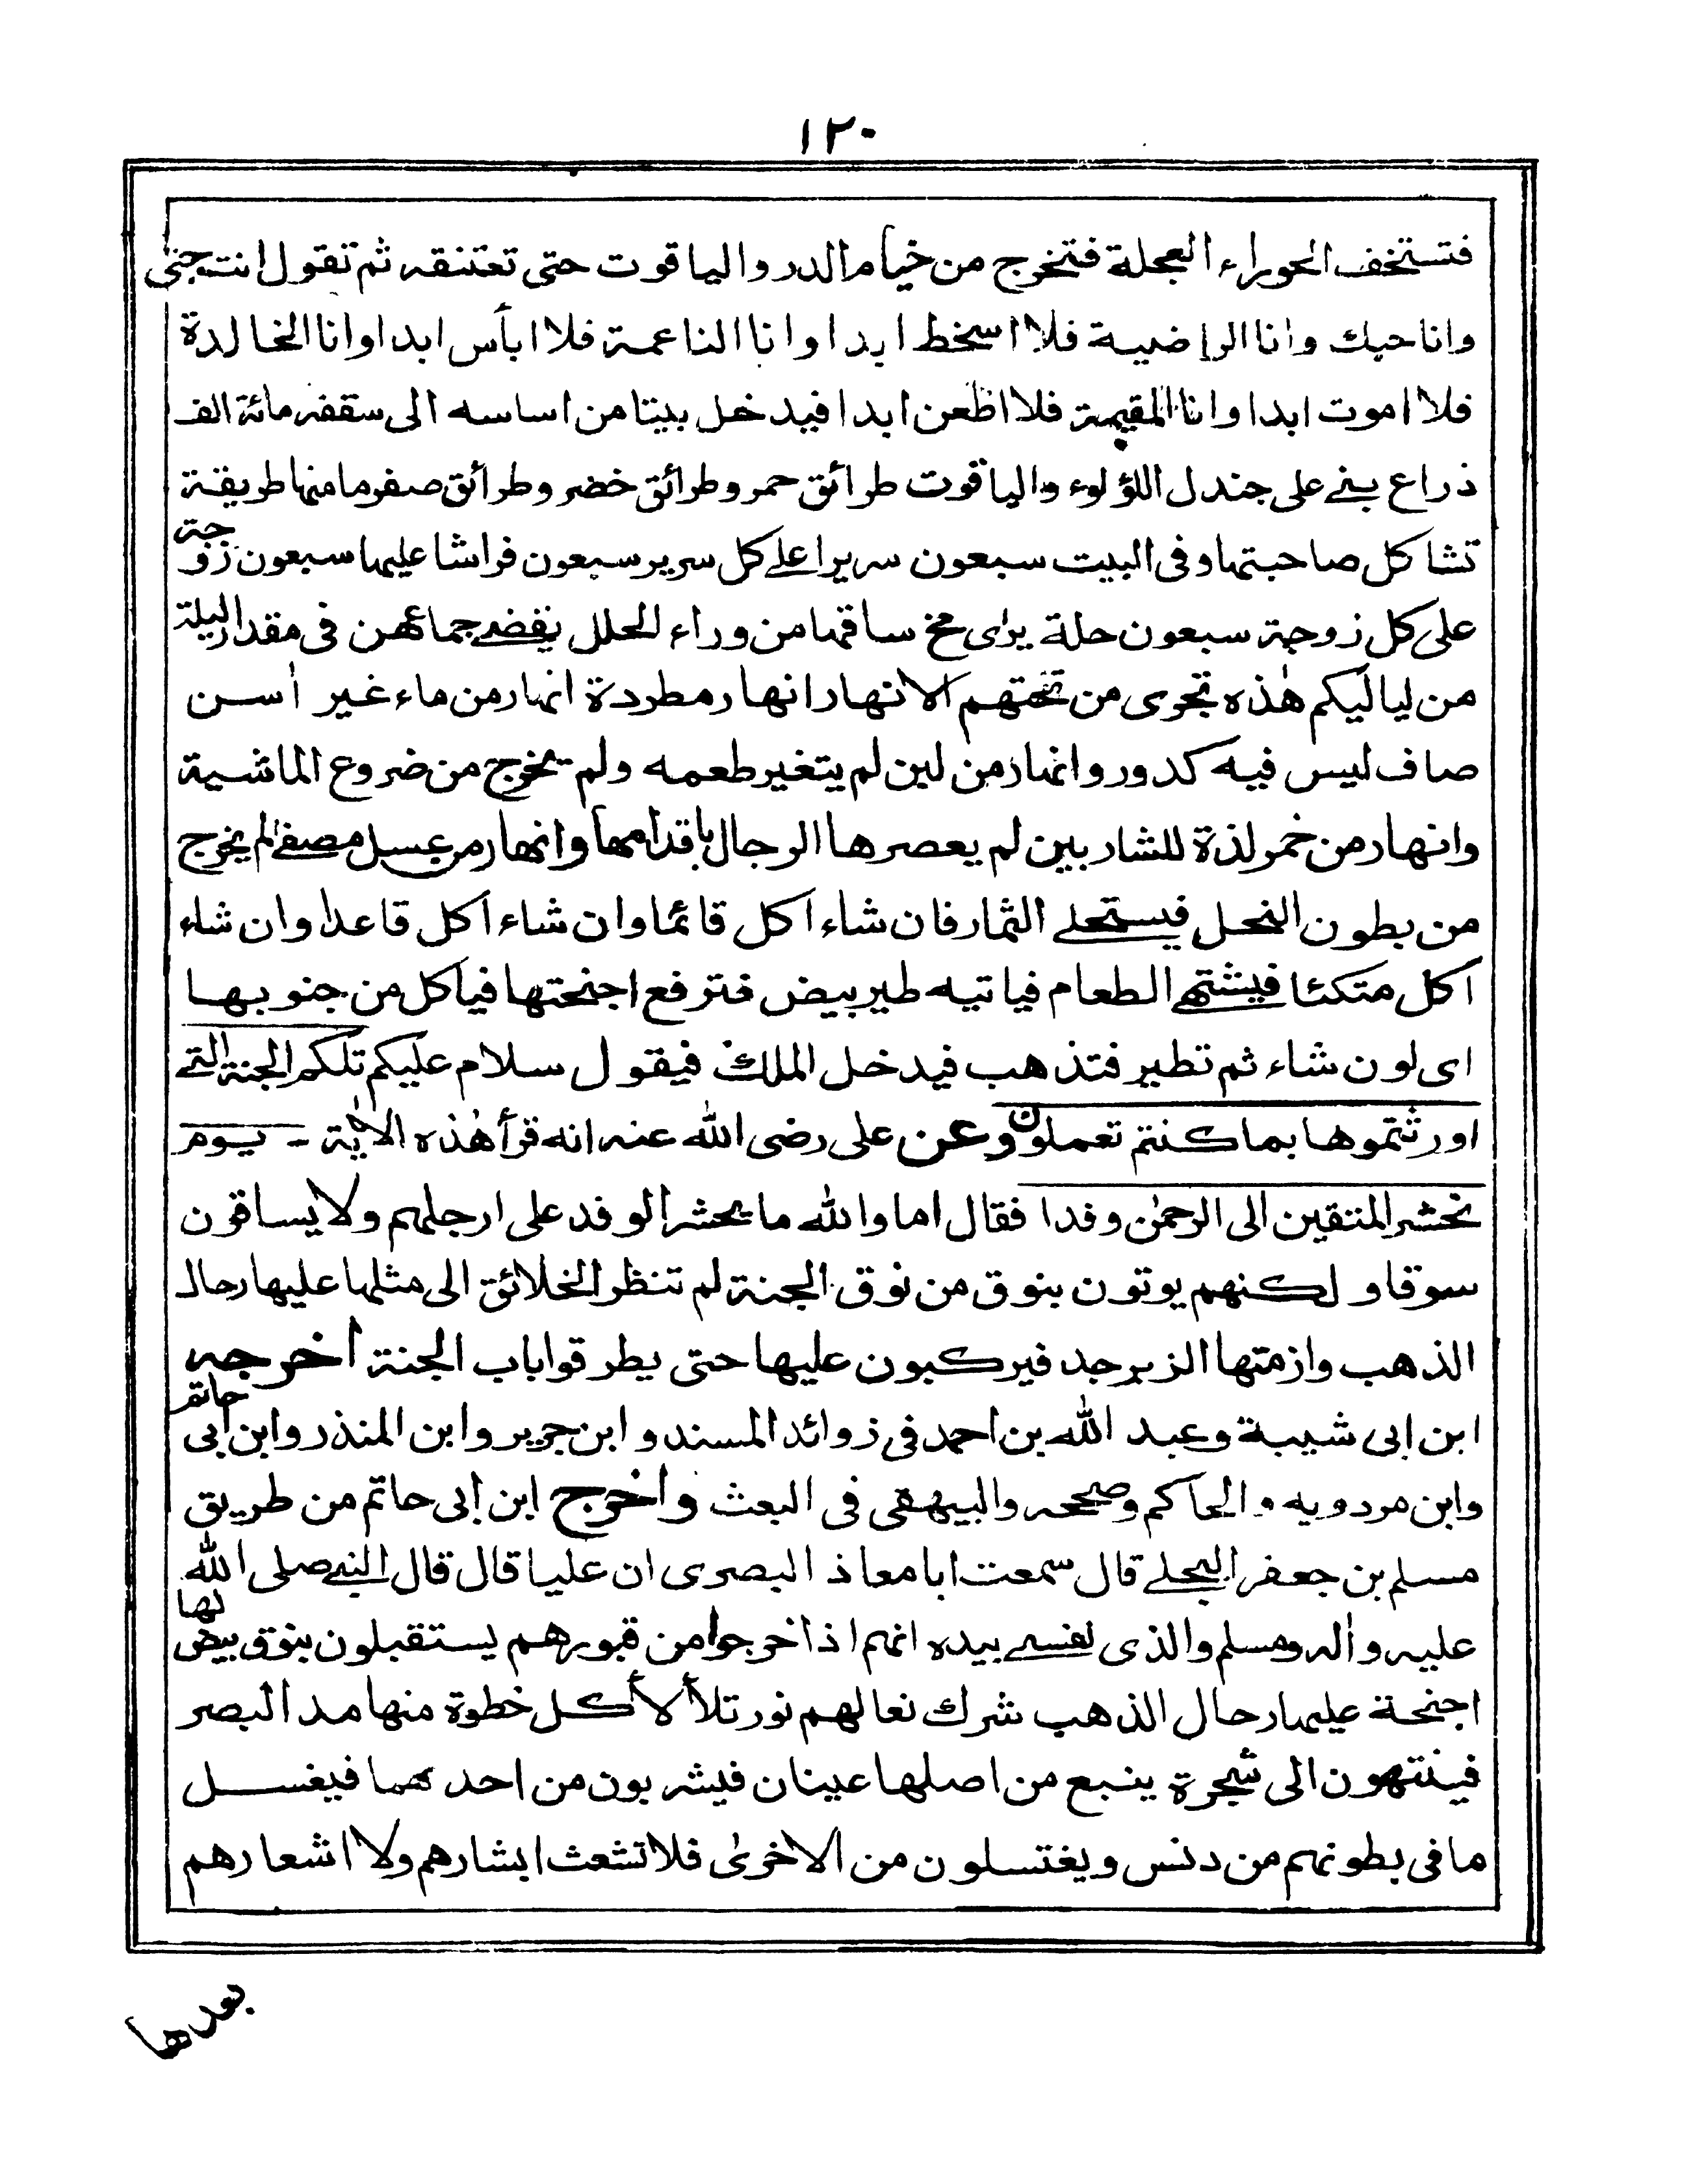 ١٢٠
فتستخف الحوراء العجلة فتخرج من خيام الدر والياقوت حتى تعتنقه ثم تقول انت حبى
وانا حبك وانا الراضية فلا اسخط ابدا وانا الناعمة فلا ابأس ابدا وانا الخالدة
فلا اموت ابدا وانا المقيمة فلا اظعن ابدا فيدخل بيتا من اساسه الى سقفه مائة الف
ذراع بنى على جندل اللؤلوء والياقوت طرائق حمر وطرائق خضر وطرائق صفر ما منها طريقة
تشاكل صاحبتها وفى البيت سبعون سريرا على كل سرير سبعون فراشا عليها سبعون زوجة
على كل زوجة سبعون حلة يرى مخ ساقها من وراء الحلل يقضى جماعهن فى مقدار ليلة
من لياليكم هٰذه تجرى من تحتهم الانهار انهار مطردة انهار من ماء غير اٰسن
صاف ليس فيه كدور وانهار من لبن لم يتغير طعمه ولم يخرج من ضروع الماشية
وانهار من خمر لذة للشاربين لم يعصرها الرجال باقدامها وانهار من عسل مصفى لم يخرج
من بطون النحل فيستحلى الثمار فان شاء اكل قائما وان شاء اكل قاعدا وان شاء
اكل متكئا فيشتهى الطعام فياتيه طير بيض فترفع اجنحتها فياكل من جنوبها
اى لون شاء ثم تطير فتذهب فيدخل الملك فيقول سلام عليكم تلكم الجنة التى
اورثتموها بما كنتم تعملون وعن على رضى الله عنه انه قرأ هٰذه الاٰية - يوم
نحشر المتقين الى الرحمٰن وفدا فقال اما والله ما يحشر الوفد على ارجلهم ولا يساقون
سوقا ولكنهم يوتون بنوق من نوق الجنة لم تنظر الخلائق الى مثلها عليها رحال
الذهب وازمتها الزبرجد فيركبون عليها حتى يطرقوا باب الجنة اخرجه
ابن ابى شيبة وعبد الله بن احمد فى زوائد المسند وابن جرير وابن المنذر وابن ابى حاتم
وابن مردويه والحاكم وصححه والبيهقى فى البعث واخرج ابن ابى حاتم من طريق
مسلم بن جعفر البجلى قال سمعت ابا معاذ البصرى ان عليا قال قال النبى صلى الله
عليه واٰله وسلم والذى نفسى بيده انهم اذا خرجوا من قبورهم يستقبلون بنوق بيض لها
اجنحة عليها رحال الذهب شرك نعالهم نور تلألأ كل خطوة منها مد البصر
فينتهون الى شجرة ينبع من اصلها عينان فيشربون من احدهما فيغسل
ما فى بطونهم من دنس ويغتسلون من الاخرىٰ فلا تشعث ابشارهم ولا اشعارهم
بعدها